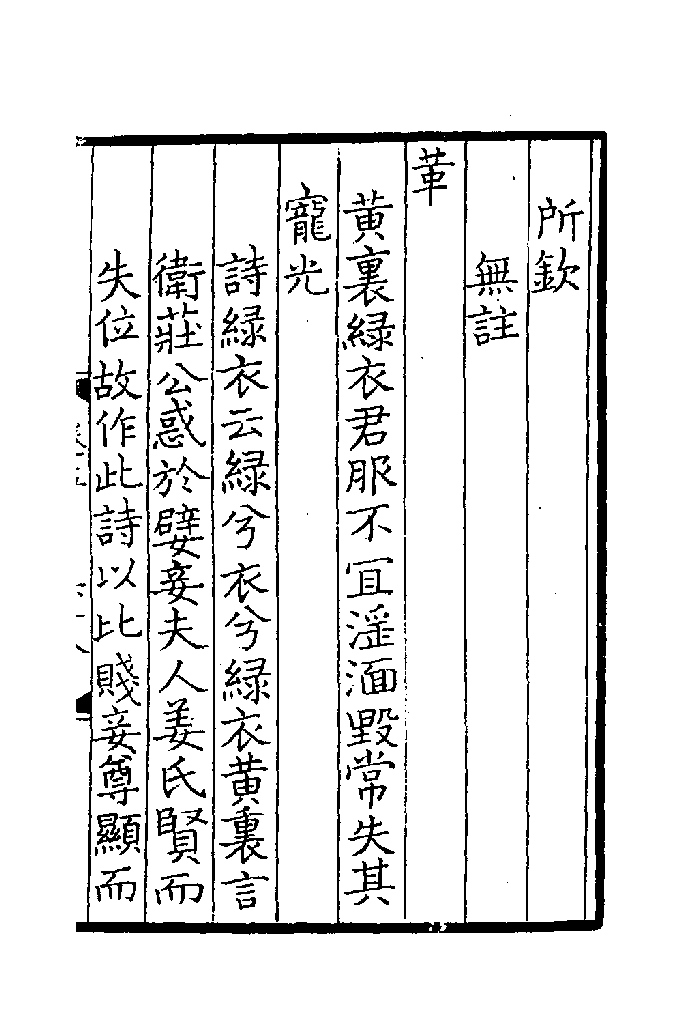 所欽
無註
革
黄裏緑衣君服不冝滛湎毁常失其
寵光
詩緑衣云緑兮衣兮緑衣黄裏言
衛莊公惑於嬖妾夫人姜氏賢而
失位故作此詩以比賤妾尊顯而